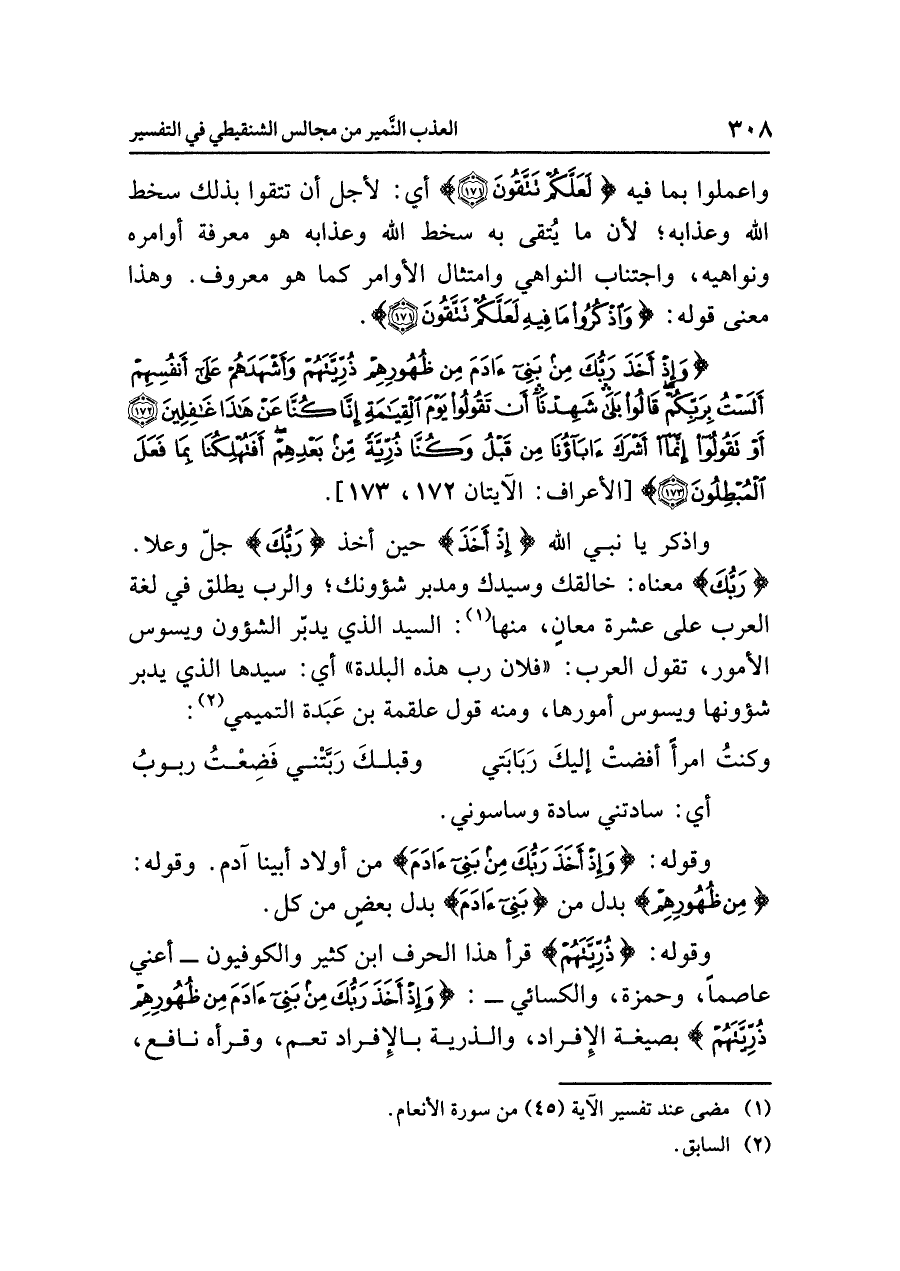 ٣٠٨ العذب النَّمير من مجالس الشنقيطي في التفسير
واعملوا بما فيه ﴿ لَعَلَّكُمْ تَتَّقُونَ ﴿١٧١﴾﴾ أي: لأجل أن تتقوا بذلك سخط
الله وعذابه؛ لأن ما يُتقى به سخط الله وعذابه هو معرفة أوامره
ونواهيه، واجتناب النواهي وامتثال الأوامر كما هو معروف. وهذا
معنى قوله: ﴿ وَٱذْكُرُوا۟ مَا فِيهِ لَعَلَّكُمْ تَتَّقُونَ ﴿١٧١﴾﴾.
﴿ وَإِذْ أَخَذَ رَبُّكَ مِنۢ بَنِىٓ ءَادَمَ مِن ظُهُورِهِمْ ذُرِّيَّتَهُمْ وَأَشْهَدَهُمْ عَلَىٰٓ أَنفُسِهِمْ
أَلَسْتُ بِرَبِّكُمْ ۖ قَالُوا۟ بَلَىٰ ۛ شَهِدْنَآ ۛ أَن تَقُولُوا۟ يَوْمَ ٱلْقِيَـٰمَةِ إِنَّا كُنَّا عَنْ هَـٰذَا غَـٰفِلِينَ ﴿١٧٢﴾
أَوْ تَقُولُوٓا۟ إِنَّمَآ أَشْرَكَ ءَابَآؤُنَا مِن قَبْلُ وَكُنَّا ذُرِّيَّةً مِّنۢ بَعْدِهِمْ ۖ أَفَتُهْلِكُنَا بِمَا فَعَلَ
ٱلْمُبْطِلُونَ ﴿١٧٣﴾﴾ [الأعراف: الآيتان ١٧٢، ١٧٣].
واذكر يا نبي الله ﴿ إِذْ أَخَذَ﴾ حين أخذ ﴿ رَبُّكَ﴾ جلّ وعلا.
﴿ رَبُّكَ﴾ معناه: خالقك وسيدك ومدبر شؤونك؛ والرب يطلق في لغة
العرب على عشرة معانٍ، منها(١): السيد الذي يدبّر الشؤون ويسوس
الأمور، تقول العرب: «فلان رب هذه البلدة» أي: سيدها الذي يدبر
شؤونها ويسوس أمورها، ومنه قول علقمة بن عَبَدة التميمي(٢):
وكنتُ امرأً أفضتْ إليكَ رَبَابَتي وقبلـكَ رَبَّتْنـي فَضِعْـتُ ربـوبُ
أي: سادتني سادة وساسوني.
وقوله: ﴿ وَإِذْ أَخَذَ رَبُّكَ مِنۢ بَنِىٓ ءَادَمَ﴾ من أولاد أبينا آدم. وقوله:
﴿ مِن ظُهُورِهِمْ﴾ بدل من ﴿ بَنِىٓ ءَادَمَ﴾ بدل بعضٍ من كل.
وقوله: ﴿ ذُرِّيَّتَهُمْ﴾ قرأ هذا الحرف ابن كثير والكوفيون ــ أعني
عاصماً، وحمزة، والكسائي ــ: ﴿ وَإِذْ أَخَذَ رَبُّكَ مِنۢ بَنِىٓ ءَادَمَ مِن ظُهُورِهِمْ
ذُرِّيَّتَهُمْ ﴾ بصيغة الإفـراد، والـذريـة بـالإفـراد تعـم، وقـرأه نـافـع،
(١) مضى عند تفسير الآية (٤٥) من سورة الأنعام.
(٢) السابق.